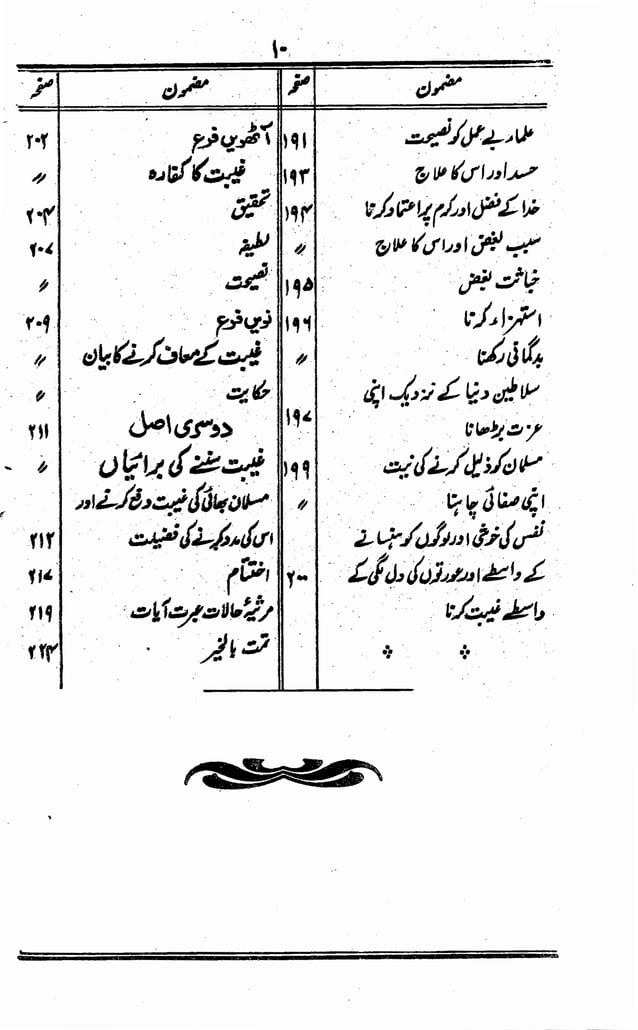 ۱۰
مضمون صفحہ
علماء بے عمل کو نصیحت ۱۹۱
حسد اور اس کا علاج ۱۹۳
خدا کے فضل اور کرم پر اعتماد کرنا ۱۹۴
سبب بغض اور اس کا علاج 〃
خباثت بغض ۱۹۵
استہزاء کرنا ۱۹۶
بدگمانی رکھنا 〃
سلاطین دنیا کے نزدیک اپنی
عزت بڑھانا ۱۹۷
مسلمان کو ذلیل کرنے کی نیت ۱۹۹
اپنی صفائی چاہنا 〃
نفس کی خوشی اور لوگوں کو ہنسانے
کے واسطے اور عورتوں کی دل لگی کے ۲۰۰
واسطے غیبت کرنا
مضمون صفحہ
آٹھویں فرع ۲۰۲
غیبت کا کفارہ 〃
تحقیق ۲۰۴
لطیفہ ۲۰۷
نصیحت 〃
نویں فرع ۲۰۹
غیبت کے معاف کرنے کا بیان 〃
حکایت 〃
دوسری اصل ۲۱۱
غیبت سننے کی برائیاں 〃
مسلمان بھائی کی غیبت دفع کرنے اور
اس کی مدد کرنے کی فضیلت ۲۱۲
اختتام ۲۱۷
مرثیۂ حالات عبرت آیات ۲۱۹
تمت بالخیر ۲۲۴